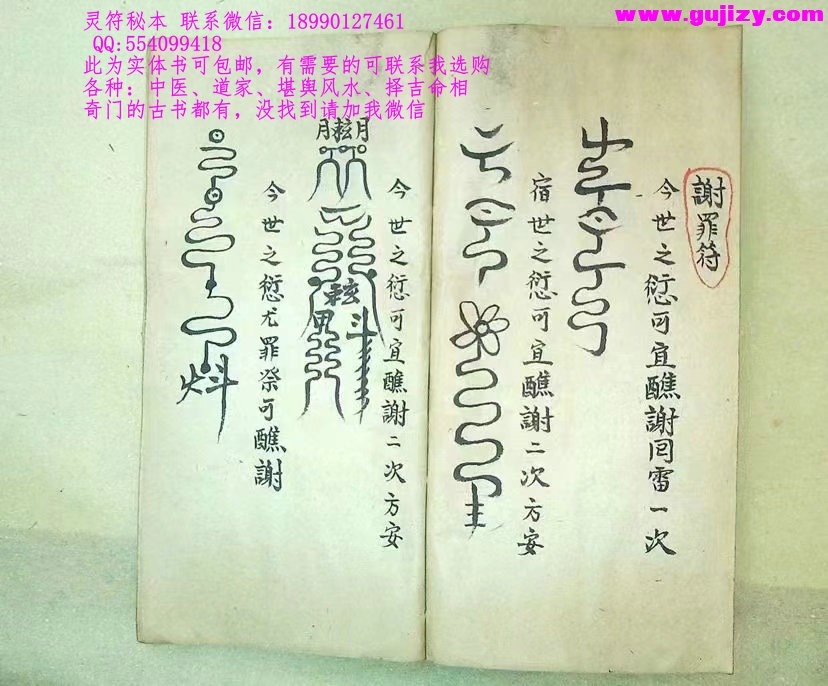 www.gujizy.com
灵符秘本 联系微信：18990127461
QQ:554099418
此为实体书可包邮，有需要的可联系我选购
各种：中医、道家、堪舆风水、择吉命相
奇门的古书都有，没找到请加我微信
謝罪符
今世之愆可宜醮謝囘雷一次
宿世之愆可宜醮謝二次方安
今世之愆可宜醮謝二次方安
今世之愆尤罪祭可醮謝